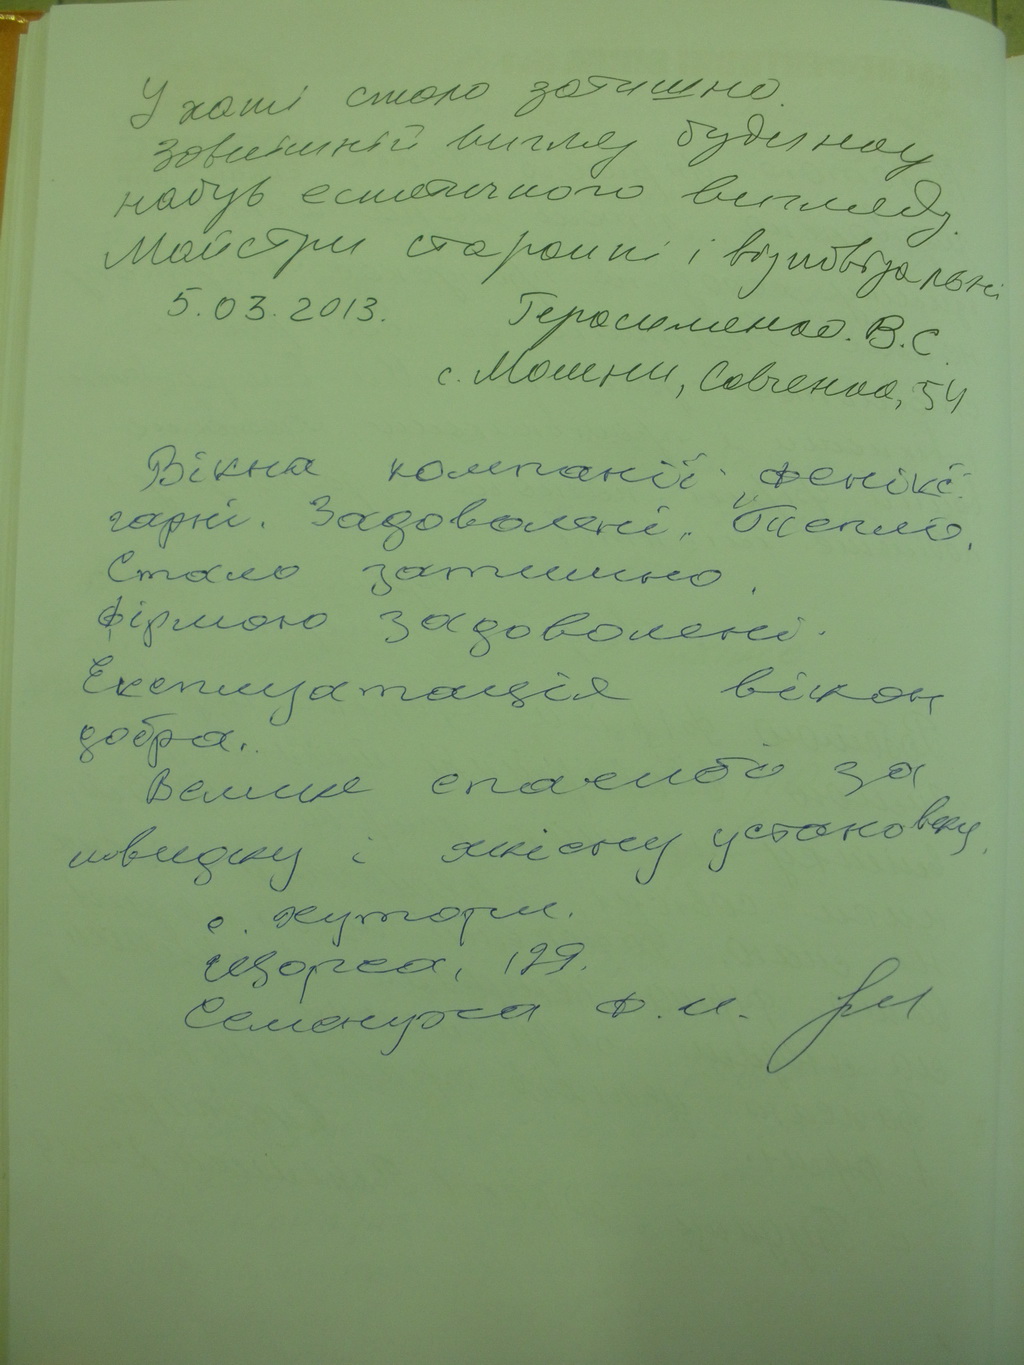 У хаті стало затишно.
Зовнішній вигляд будинку
набув естетичного вигляду.
Майстри старанні і відповідальні
5.03.2013. Герасименко. В.С.
с. Мошни, Савченка, 54
Вікна компанії "Фенікс"
гарні. Задоволені. Тепло.
Стало затишно.
Фірмою задоволені.
Експлуатація вікон
добра.
Велике спасибі за
швидку і якісну установку.
с. Хутори.
Щорса, 129.
Ф. И.